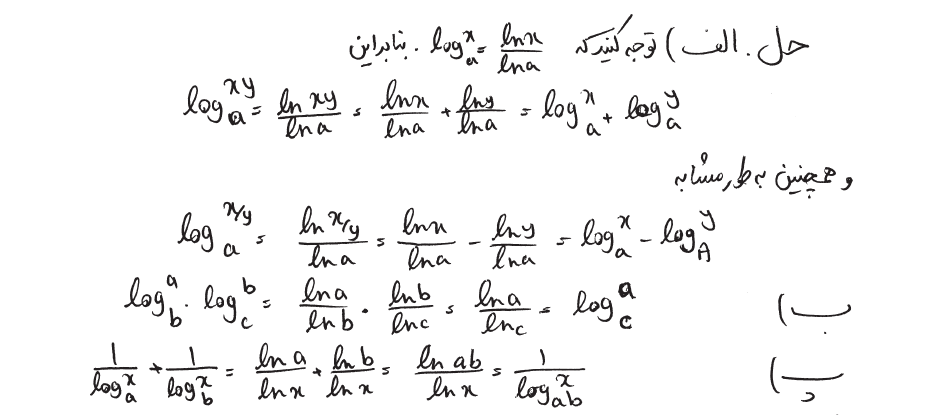 حل. الف) توجه کنید که log_a^x = ln x / ln a . بنابراین
log_a^{xy} = ln xy / ln a = ln x / ln a + ln y / ln a = log_a^x + log_a^y
و همچنین به طور مشابه
log_a^{x/y} = ln x/y / ln a = ln x / ln a - ln y / ln a = log_a^x - log_A^y
ب) log_b^a . log_c^b = ln a / ln b . ln b / ln c = ln a / ln c = log_c^a
پ) 1 / log_a^x + 1 / log_b^x = ln a / ln x + ln b / ln x = ln ab / ln x = 1 / log_{ab}^x